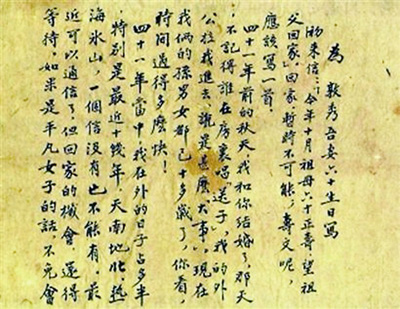 為 敦秀吾妻六十生日寫
來信:「今年十月祖母六十正壽望祖
父回家。」回家暫時不可能,壽文呢,
應該寫一首。
四十一年前的秋天我和你結婚了,那天
不記得誰在房裏唱「送子」,我的外
公拉我進去,說是甚麽大事。現在
我倆的孫男女都已十多歲了,你看,
時間過得多麽快!
四十一年當中我在外的日子占多半
,特別是最近十幾年,天南地北,熱
海氷山,一個信沒有也不能有。最
近可以通信了,但回家的機會,還得
等待。如果是平凡女子的話,不免會